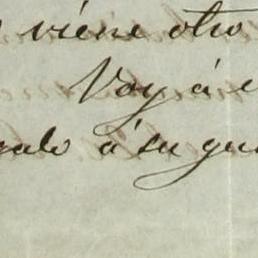 viene otro
Voy á e
galo á su gu